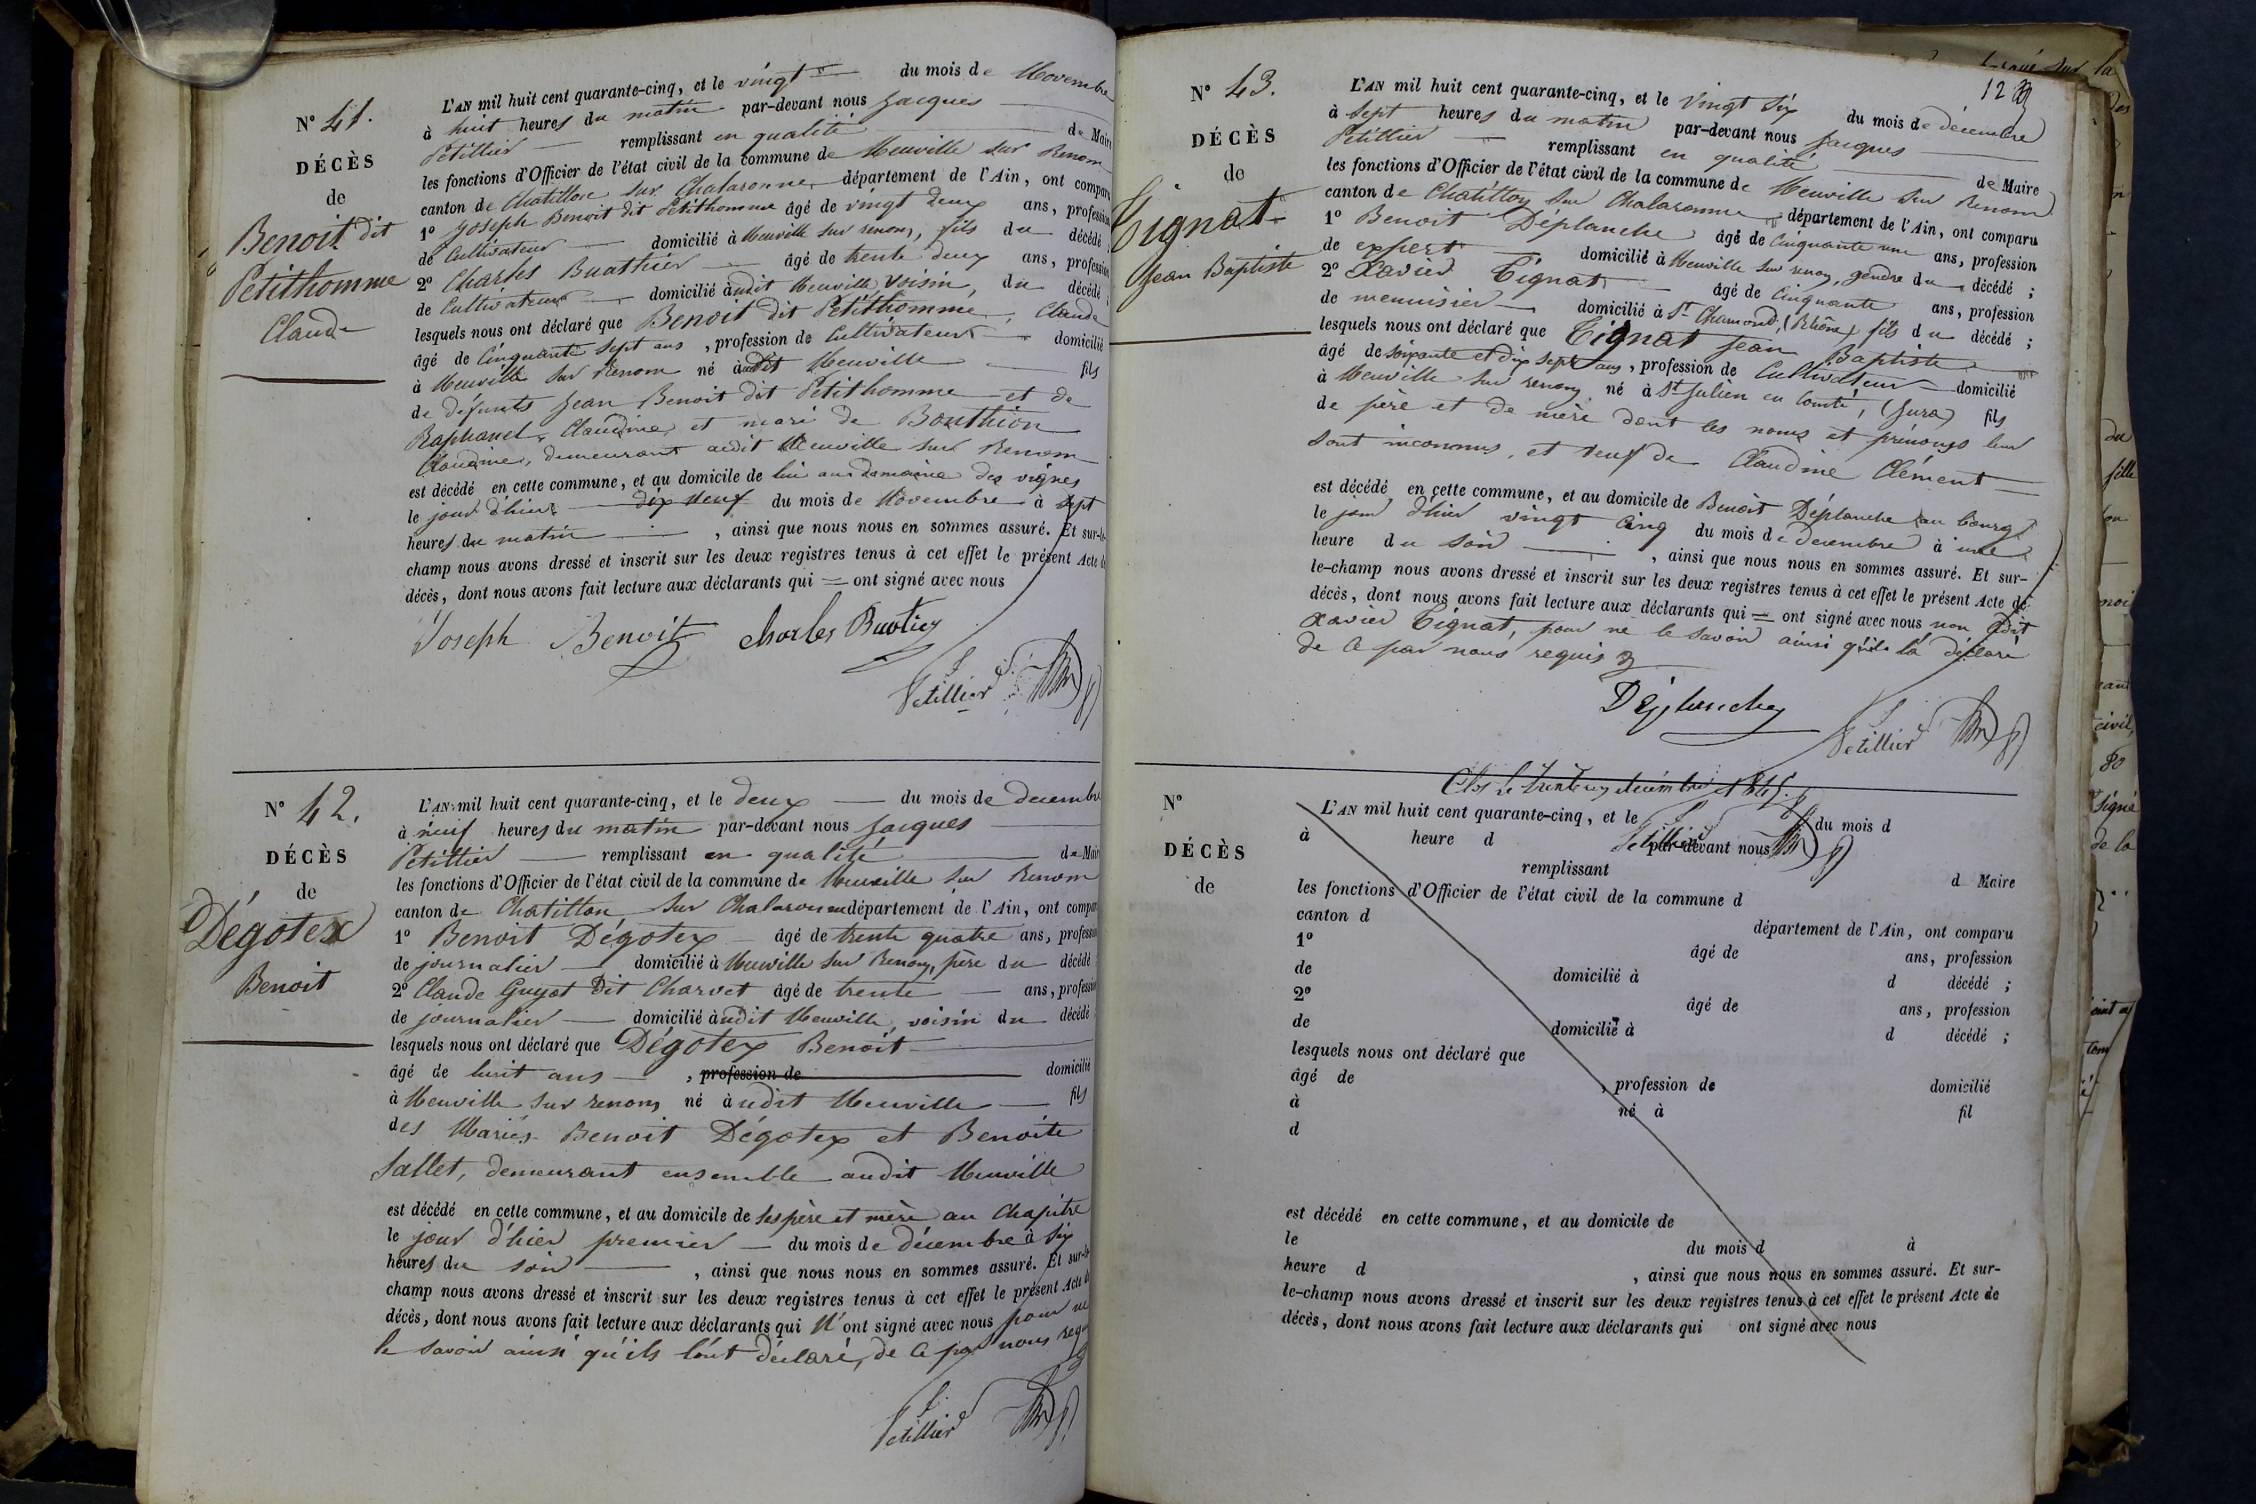 N° 41.
DÉCÈS
de
Benoit dit
Petithomme
Claude
L'AN mil huit cent quarante-cinq, et le vingt du mois de Novembre
à huit heures du matin par-devant nous Jacques
Petillier remplissant en qualité de Maire
les fonctions d'Officier de l'état civil de la commune de Neuville sur Renom
canton de Chatillon sur Chalaronne département de l'Ain, ont comparu
1° Joseph Benoit dit Petithomme âgé de vingt deux ans, profession
de Cultivateur domicilié à Neuville sur renom, fils du décédé ;
2° Charles Buathier âgé de trente deux ans, profession
de Cultivateur domicilié àudit Neuville voisin, du décédé ;
lesquels nous ont déclaré que Benoit dit Petithomme, Claude
âgé de Cinquante sept ans , profession de Cultivateur domicilié
à Neuville sur Renom né àudit Neuville fils
de défunts Jean Benoit dit Petithomme et de
Raphanel, Claudine, et mari de Bouthion
Claudine, demeurant audit Neuville sur Renom
est décédé en cette commune, et au domicile de lui au domaine des vignes
le jour d'hier dix neuf du mois de Novembre à sept
heures du matin , ainsi que nous nous en sommes assuré. Et sur-le-
champ nous avons dressé et inscrit sur les deux registres tenus à cet effet le présent Acte de
décès, dont nous avons fait lecture aux déclarants qui = ont signé avec nous
Joseph Benoit Charles Buotier
Petillier
N° 42.
DÉCÈS
de
Dégotex
Benoit
L'AN mil huit cent quarante-cinq, et le deux du mois de decembre
à neuf heures du matin par-devant nous Jacques
Petillier remplissant en qualité de Maire
les fonctions d'Officier de l'état civil de la commune de Neuville sur Renom
canton de Chatillon sur Chalaronne département de l'Ain, ont comparu
1° Benoit Dégotex âgé de trente quatre ans, profession
de journalier domicilié à Neuville sur Renom, père du décédé ;
2° Claude Guyot Dit Charvet âgé de trente ans, profession
de journalier domicilié àudit Neuville, voisin du décédé ;
lesquels nous ont déclaré que Dégotex Benoit
âgé de huit ans , profession de domicilié
à Neuville sur renom né àudit Neuville fils
des Mariés Benoit Dégotex et Benoite
Sallet, demeurant ensemble audit Neuville
est décédé en cette commune, et au domicile de ses père et mère au Chapitre
le jour d'hier premier du mois de décembre à six
heures du soir , ainsi que nous nous en sommes assuré. Et sur-le-
champ nous avons dressé et inscrit sur les deux registres tenus à cet effet le présent Acte de
décès, dont nous avons fait lecture aux déclarants qui N'ont signé avec nous pour ne
le savoir ainsi qu'ils l'ont déclaré, de ce par nous requis
Petillier
12
N° 43.
DÉCÈS
de
Tignat
Jean Baptiste
L'AN mil huit cent quarante-cinq, et le Vingt six du mois de décembre
à sept heures du matin par-devant nous Jacques
Petillier remplissant en qualité de Maire
les fonctions d'Officier de l'état civil de la commune de Neuville sur Renom
canton de Chatillon sur Chalaronne département de l'Ain, ont comparu
1° Benoit Déplanche âgé de Cinquante une ans, profession
de expert domicilié à Neuville sur renom, gendre du décédé ;
2° Xavier Tignat âgé de Cinquante ans, profession
de menuisier domicilié à St Chamond, (Rhône) fils du décédé ;
lesquels nous ont déclaré que Tignat Jean Baptiste
âgé de soixante et dix sept ans , profession de Cultivateur domicilié
à Neuville sur renom né à St Julien en Comté, (Jura) fils
de père et de mère dont les noms et prénoms leur
sont inconnus, et veuf de Claudine Clément
est décédé en cette commune, et au domicile de Benoit Déplanche au bourg
le jour d'hier vingt Cinq du mois de decembre à une
heure du soir , ainsi que nous nous en sommes assuré. Et sur-
le-champ nous avons dressé et inscrit sur les deux registres tenus à cet effet le présent Acte de
décès, dont nous avons fait lecture aux déclarants qui = ont signé avec nous non ledit
Xavier Tignat, pour ne le savoir ainsi qu'il l'a déclaré
de ce par nous requis
Déplanche
Petillier
Clos le trente un décembre 1845.
Petillier
N°
DÉCÈS
de
L'AN mil huit cent quarante-cinq, et le du mois d
à heure d par-devant nous
remplissant d Maire
les fonctions d'Officier de l'état civil de la commune d
canton d département de l'Ain, ont comparu
1° âgé de ans, profession
de domicilié à d décédé ;
2° âgé de ans, profession
de domicilié à d décédé ;
lesquels nous ont déclaré que
âgé de , profession de domicilié
à né à fil
d
est décédé en cette commune, et au domicile de
le du mois d à
heure d , ainsi que nous nous en sommes assuré. Et sur-
le-champ nous avons dressé et inscrit sur les deux registres tenus à cet effet le présent Acte de
décès, dont nous avons fait lecture aux déclarants qui ont signé avec nous